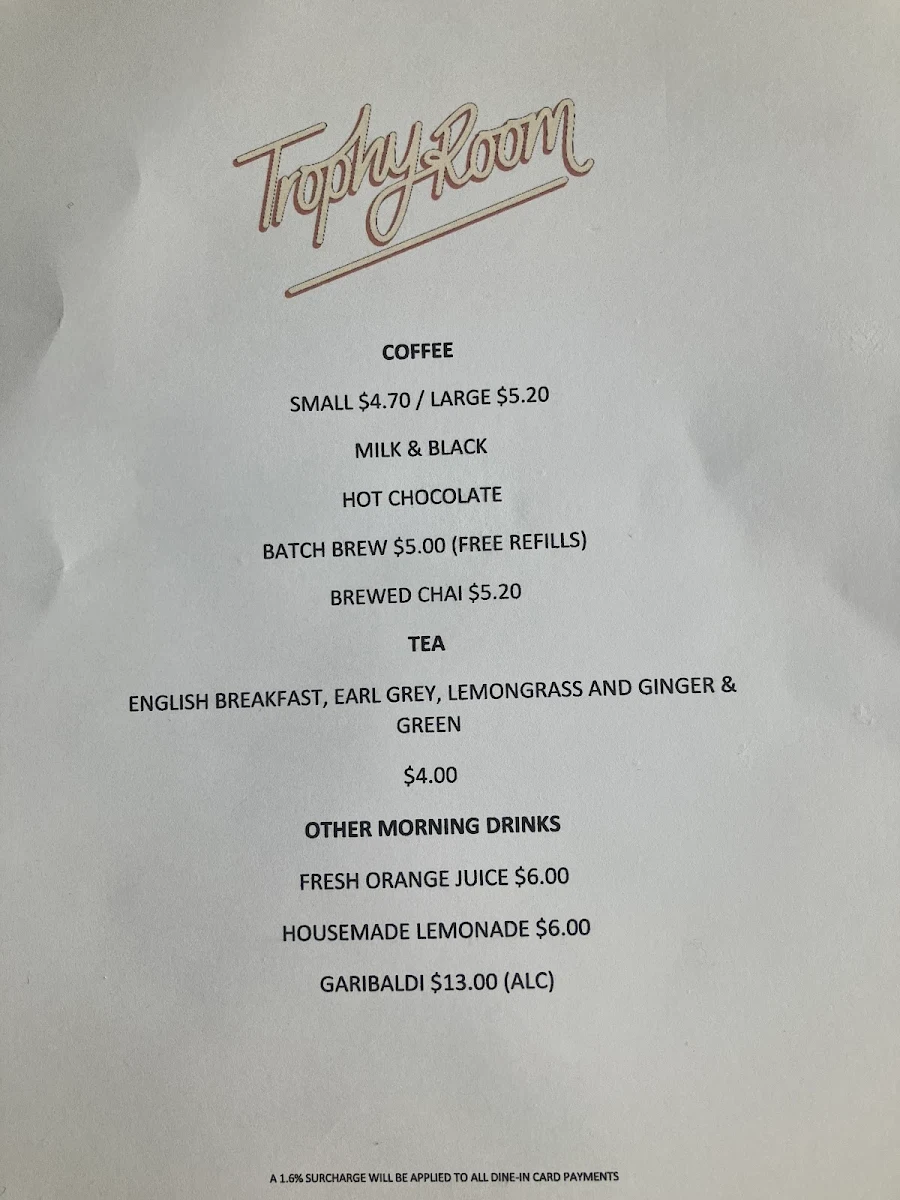 Trophy Room
COFFEE
SMALL $4.70 / LARGE $5.20
MILK & BLACK
HOT CHOCOLATE
BATCH BREW $5.00 (FREE REFILLS)
BREWED CHAI $5.20
TEA
ENGLISH BREAKFAST, EARL GREY, LEMONGRASS AND GINGER &
GREEN
$4.00
OTHER MORNING DRINKS
FRESH ORANGE JUICE $6.00
HOUSEMADE LEMONADE $6.00
GARIBALDI $13.00 (ALC)
A 1.6% SURCHARGE WILL BE APPLIED TO ALL DINE-IN CARD PAYMENTS